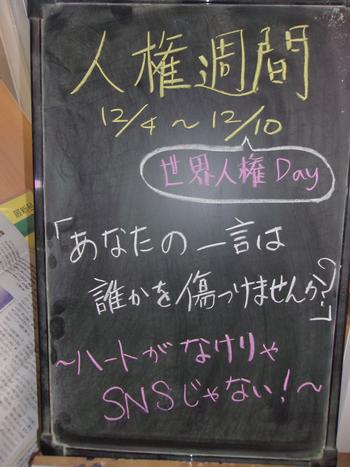 人権週間
12/4 ～ 12/10
世界人権 Day
「あなたの一言は
誰かを傷つけませんか?」
～ハートがなけりゃ
SNSじゃない!～